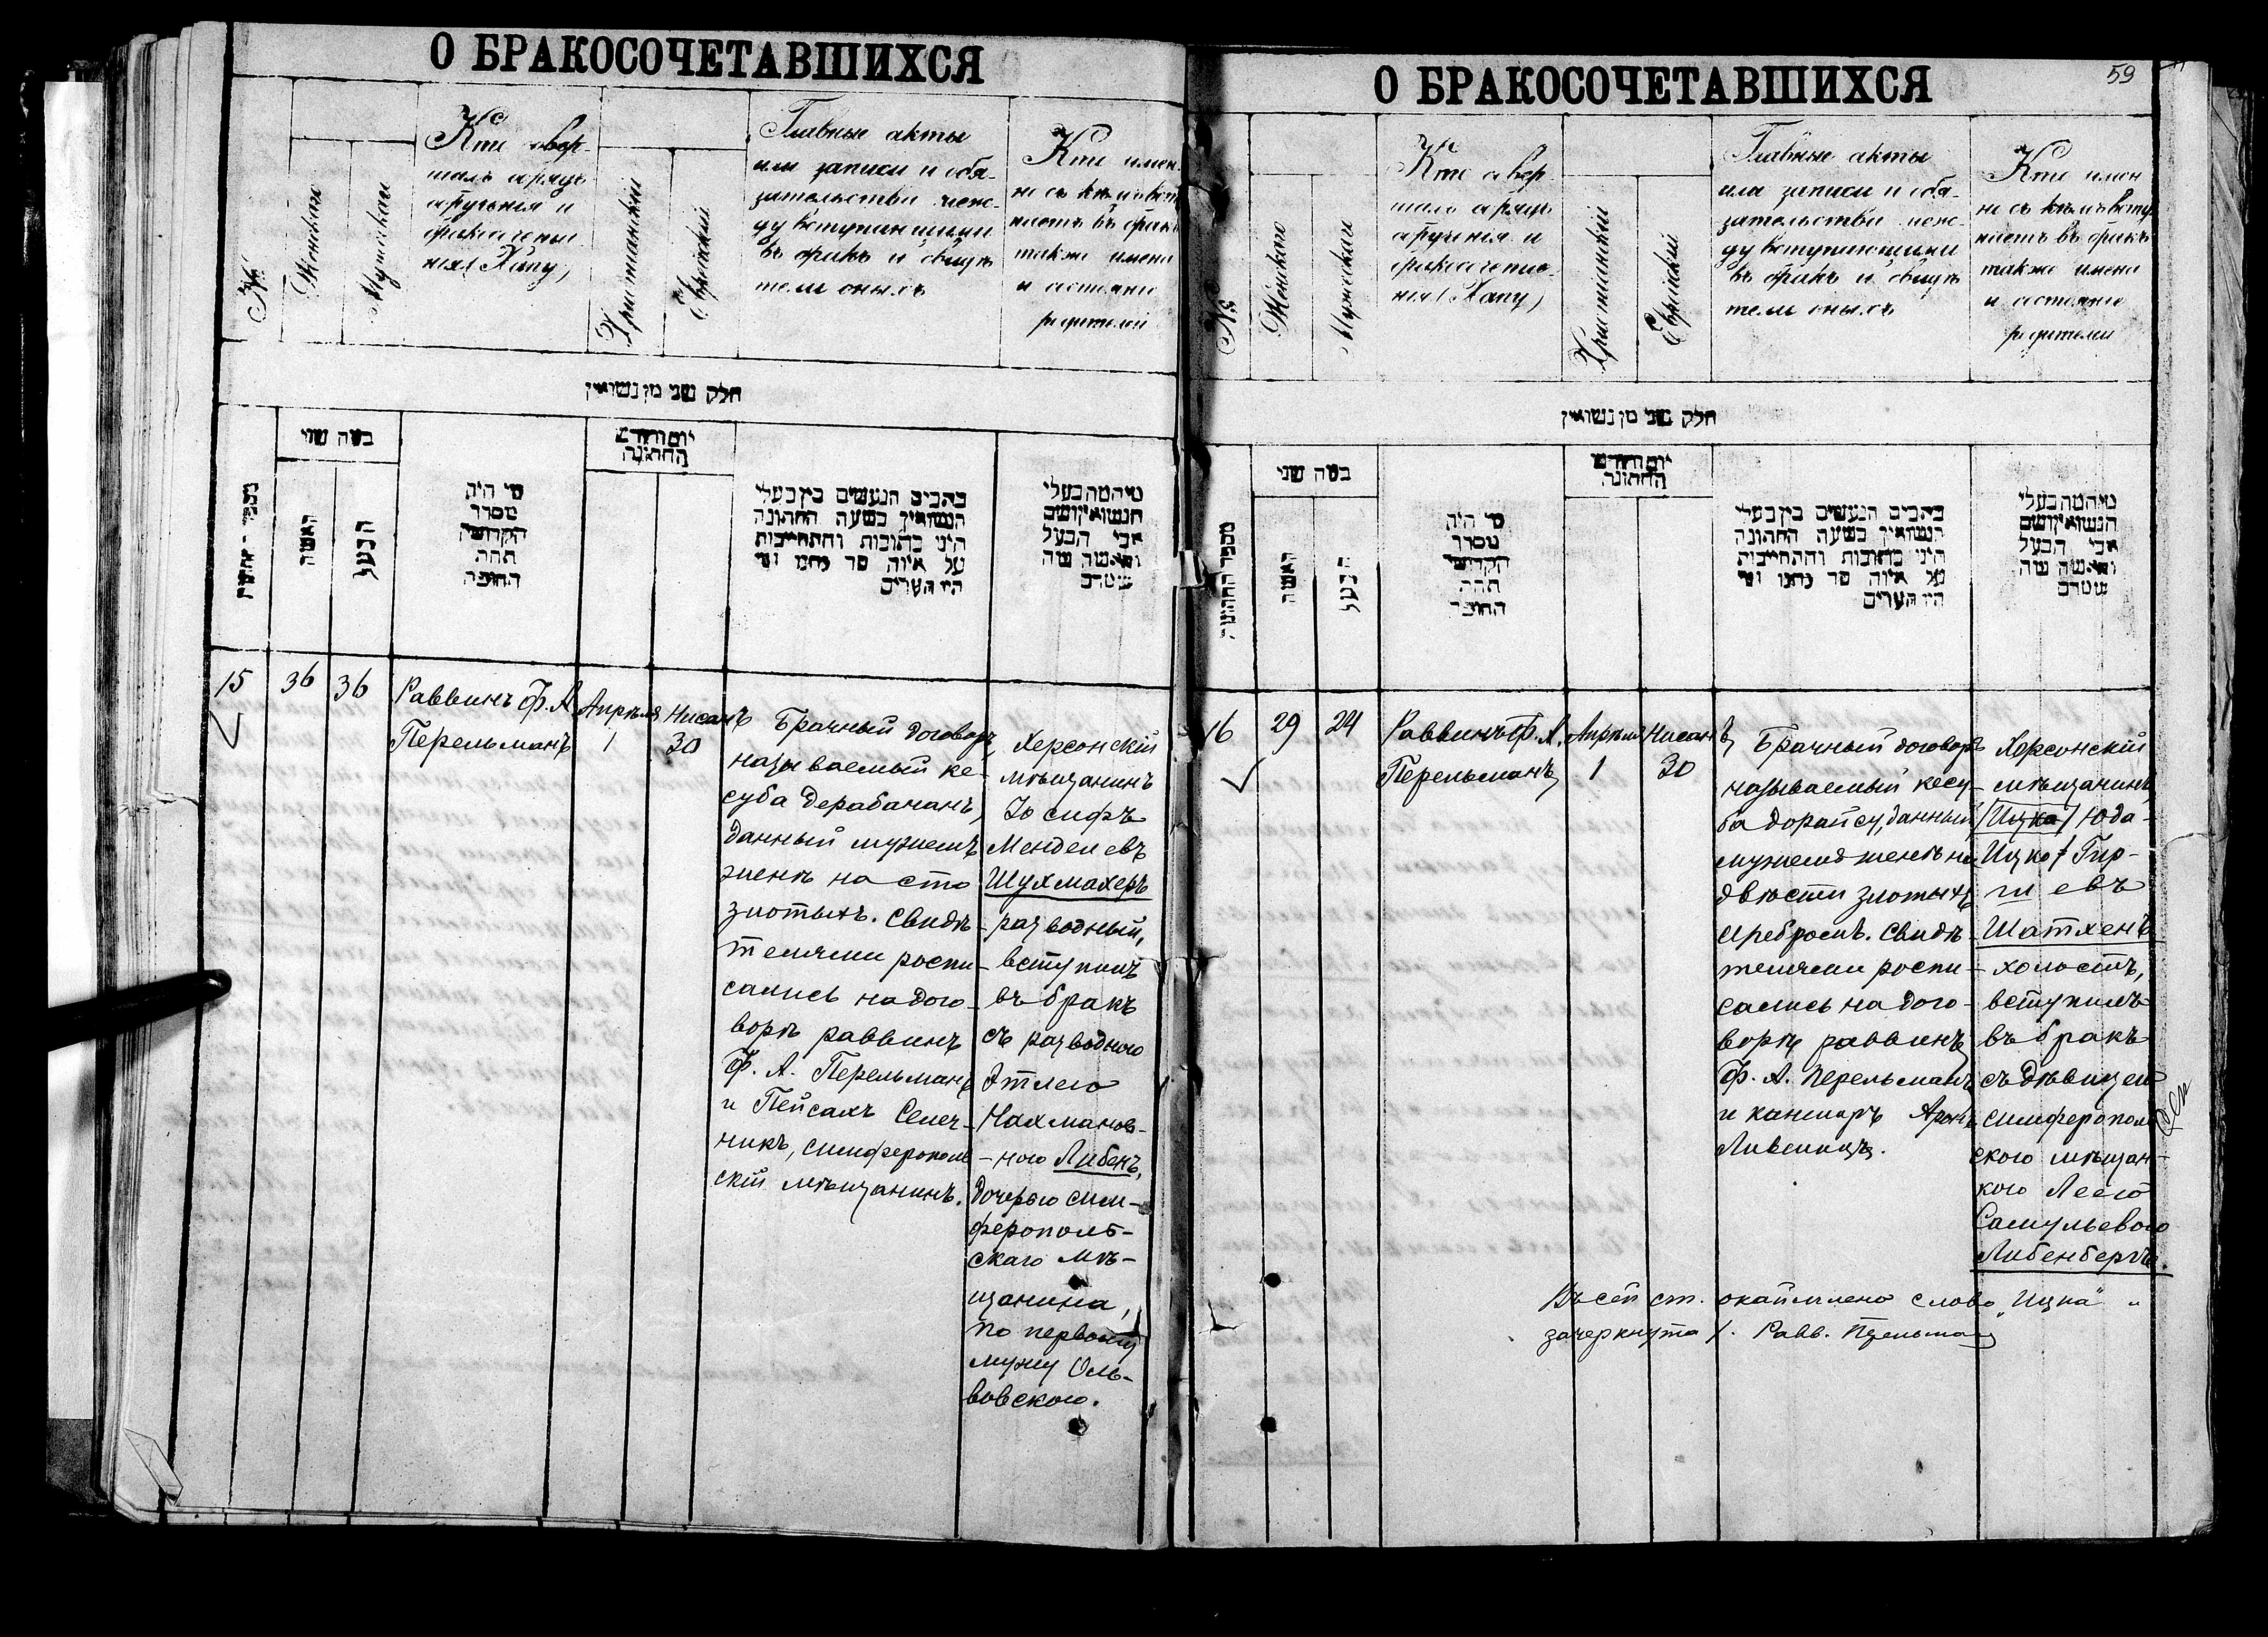 О БРАКОСОЧЕТАВШИХСЯ
№
Женскаго
Мужескаго
Кто совер-
шалъ обрядъ
обрученія и
бракосочета-
нія (Хупу)
Христіанскій
Еврейскій
Главные акты
или записи и обя-
зательства меж-
ду вступающими
въ бракъ и свидѣ-
тели оныхъ
Кто имен-
но съ кѣмъ всту-
паетъ въ бракъ
также имена
и состояніе
родителей
חלק שני מן נשואין
כמה שני
האשה
הבעל
מי היה
מסדר
הקדושין
תחת
החופה
יום וחדש
החתונה
כתבים הנעשים בין בעלי
הנשואין בשעה החתונה
היני כתובות והתחייבות
על איזה סך נתנו ומי
היו העדים
הנשואין ושם
אבי הבעל
15
36
36
Раввинъ Ф. А.
Перельманъ
Апрѣля
1
Нисанъ
30
Брачный договоръ,
называемый ке-
суба дерабананъ,
данный мужемъ
женѣ на сто
злотыхъ. Свидѣ-
телями роспи-
сались на дого-
ворѣ раввинъ
Ф. А. Перельманъ
и Пейсахъ Селеч-
никъ, симферополь-
скій мѣщанинъ.
Херсонскій
мѣщанинъ
Іосифъ
Менделевъ
Шухмахеръ
разводный,
вступилъ
въ бракъ
съ разводною
Этлею
Нахманов-
-ною Либенъ,
дочерью сим-
ферополь-
скаго мѣ-
щанина,
по первому
мужу Оль-
вовскою.
О БРАКОСОЧЕТАВШИХСЯ
59
№
Женскаго
Мужескаго
Кто совер-
шалъ обрядъ
обрученія и
бракосочета-
нія (Хапу)
Христіанскій
Еврейскій
Главные акты
или записи и обя-
зательства меж-
ду вступающими
въ бракъ и свидѣ-
тели оныхъ
Кто имен-
но съ кѣмъ всту-
паетъ въ бракъ
также имена
и состояніе
родителей
חלק שני מן נשואין
כמה שני
מספר החתונה
האשה
הבעל
מי היה
מסדר
הקדושין
תחת
החופה
יום וחדש
החתונה
כתבים הנעשים בין בעלי
הנשואין בשעה החתונה
היני כתובות והתחייבות
על איזה סך נתנו ומי
היו העדים
הנשואין ושם
אבי הבעל
16
29
24
Раввинъ Ф. А.
Перельманъ
Апрѣля
1
Нисанъ
30
Брачный договоръ
называемый кесу-
ба дорайсу, данный
мужемъ женѣ на
двѣсти злотыхъ
серебромъ. Свидѣ-
телями роспи-
сались на дого-
ворѣ раввинъ
Ф. А. Перельманъ
и канторъ Аронъ
Лившицъ.
Херсонскій
мѣщанинъ
/Ицка/ Юда-
Ицко Гир-
ш евъ
Шатхенъ
холостъ,
вступилъ
въ бракъ
съ дѣвицею
симферополь-
скою мѣщан-
кою Леею
Самульевою
Либенбергъ.
Въ сей ст. окаймлено слово „Ицка" и
зачеркнута /. Равв. Перельманъ